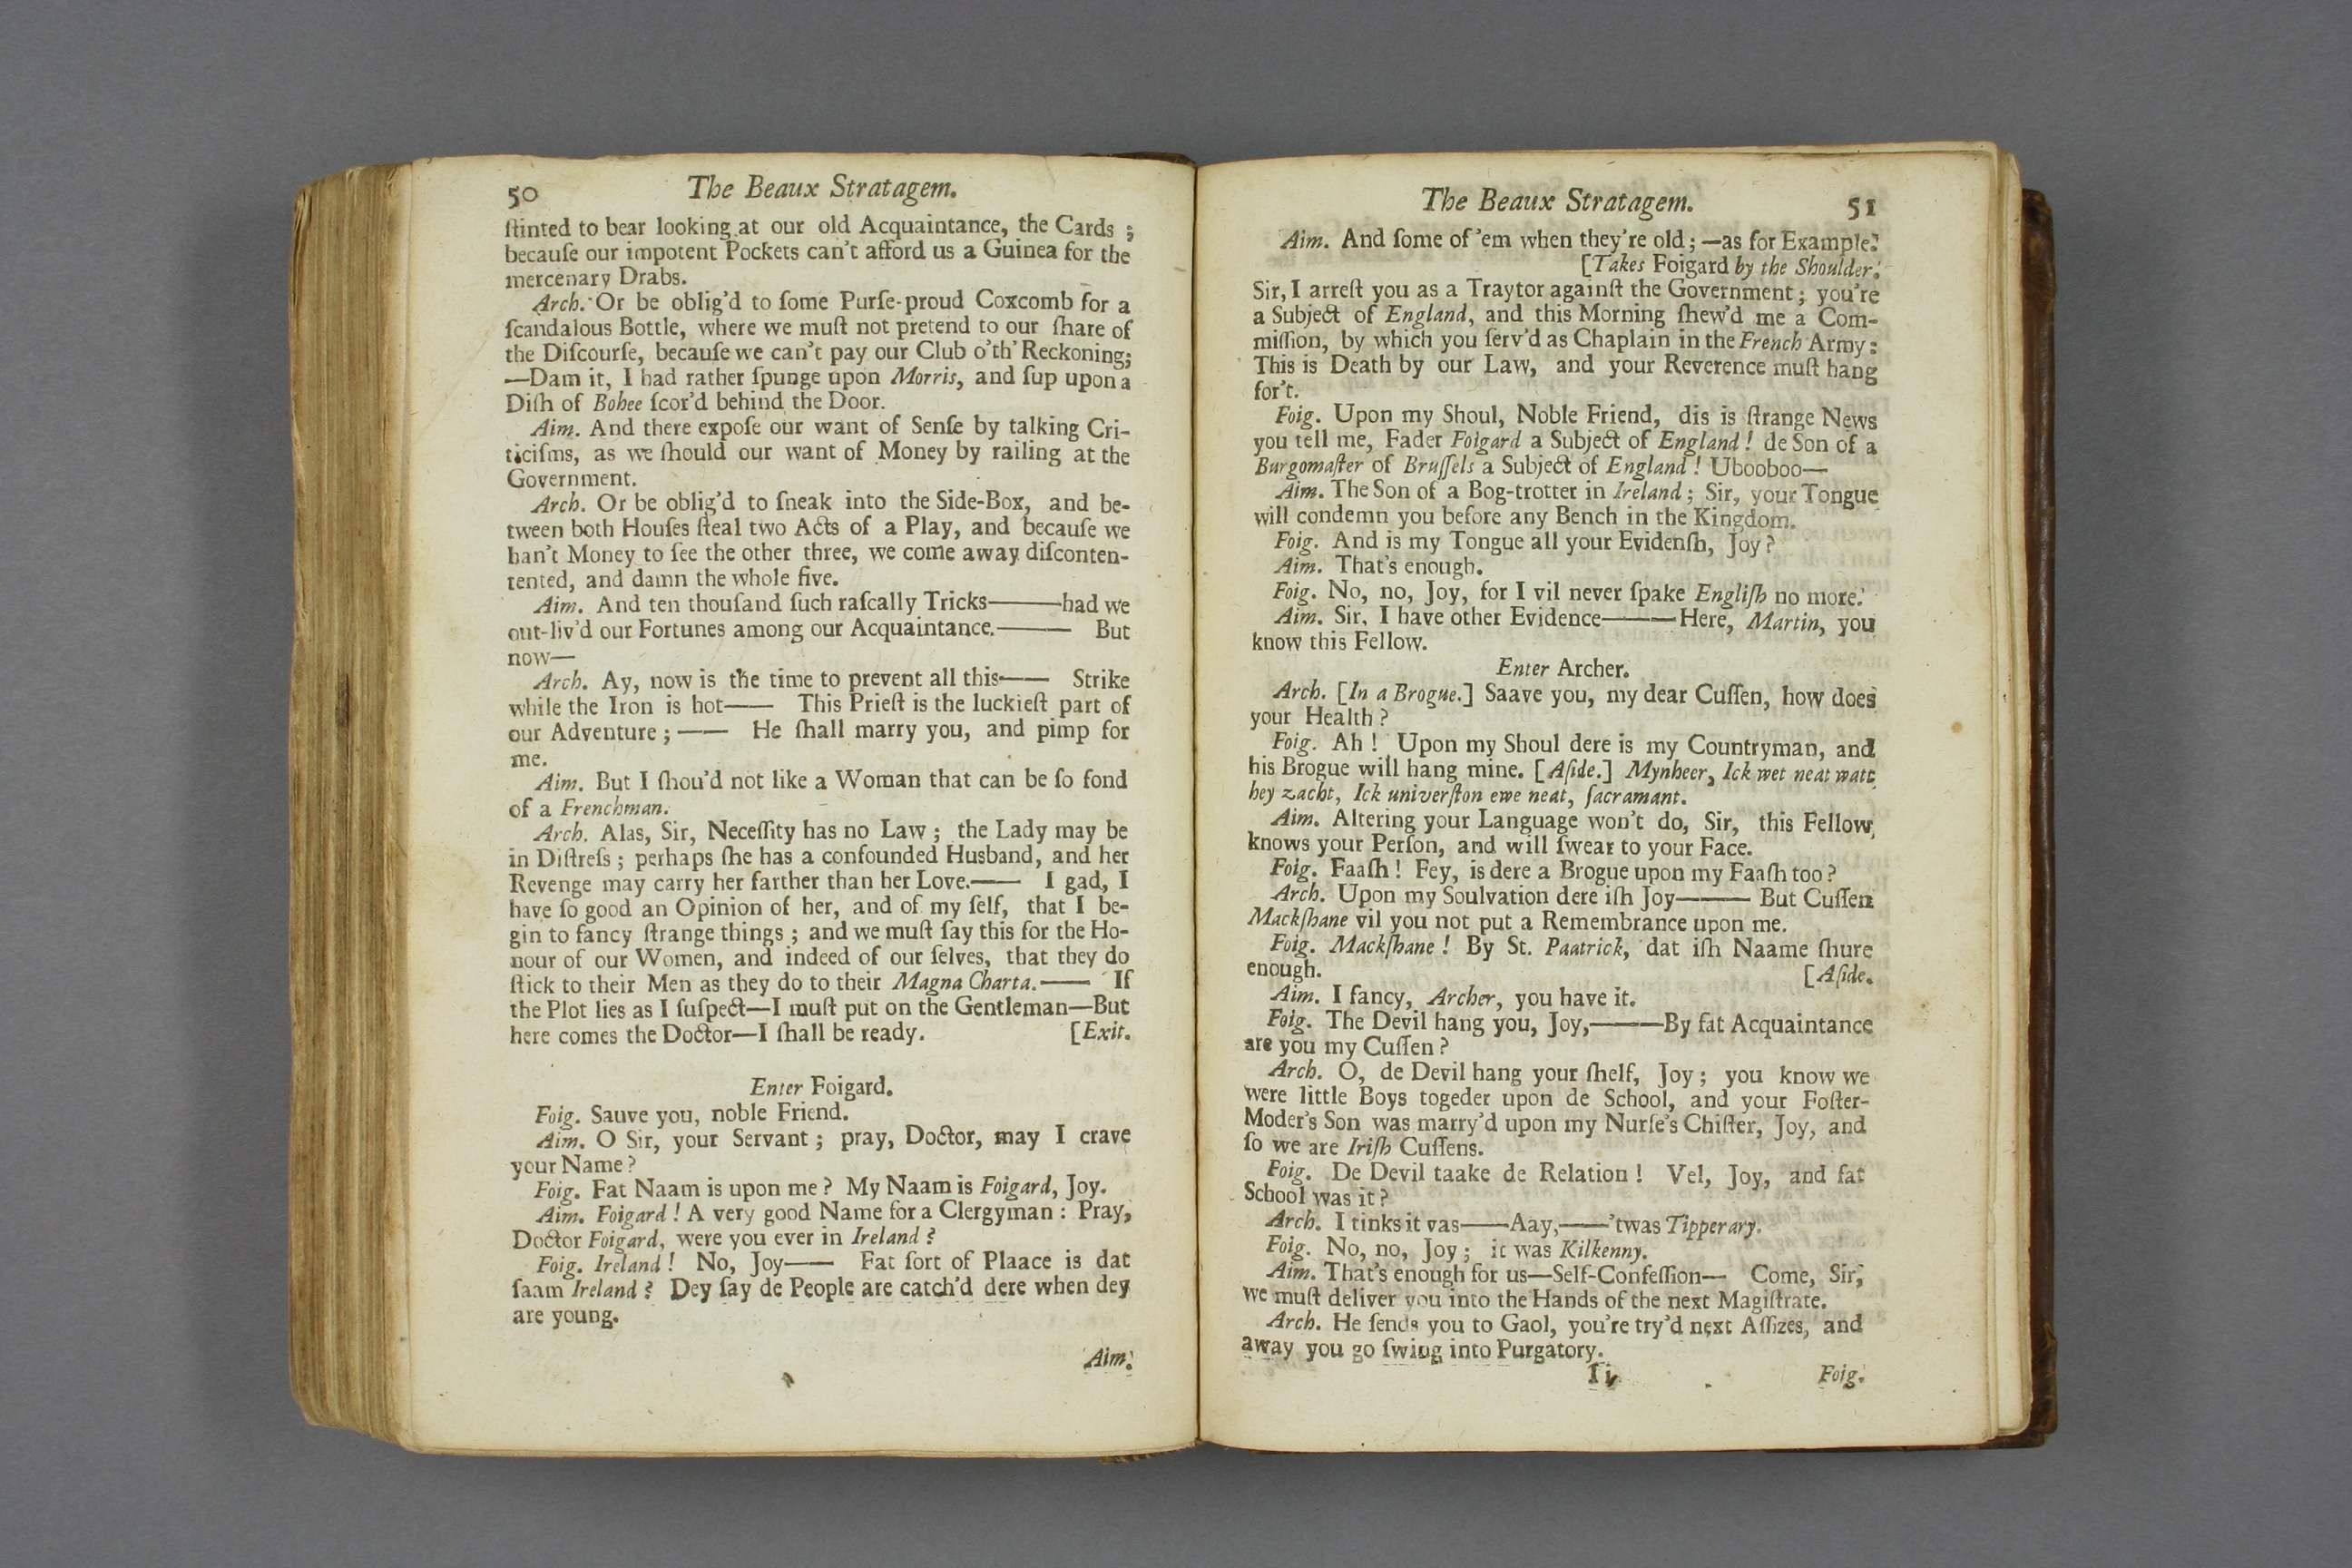 50 The Beaux Stratagem.
ſtinted to bear looking at our old Acquaintance, the Cards ;
becauſe our impotent Pockets can't afford us a Guinea for the
mercenary Drabs.
Arch. Or be oblig'd to ſome Purſe-proud Coxcomb for a
ſcandalous Bottle, where we muſt not pretend to our ſhare of
the Diſcourſe, becauſe we can't pay our Club o'th' Reckoning;
—Dam it, I had rather ſpunge upon Morris, and ſup upon a
Diſh of Bohee ſcor'd behind the Door.
Aim. And there expoſe our want of Senſe by talking Cri-
ticiſms, as we ſhould our want of Money by railing at the
Government.
Arch. Or be oblig'd to ſneak into the Side-Box, and be-
tween both Houſes ſteal two Acts of a Play, and becauſe we
han't Money to ſee the other three, we come away diſconten-
tented, and damn the whole five.
Aim. And ten thouſand ſuch raſcally Tricks———had we
out-liv'd our Fortunes among our Acquaintance.——— But
now—
Arch. Ay, now is the time to prevent all this—— Strike
while the Iron is hot—— This Prieſt is the luckieſt part of
our Adventure ; —— He ſhall marry you, and pimp for
me.
Aim. But I ſhou'd not like a Woman that can be ſo fond
of a Frenchman.
Arch. Alas, Sir, Neceſſity has no Law ; the Lady may be
in Diſtreſs ; perhaps ſhe has a confounded Husband, and her
Revenge may carry her farther than her Love.—— I gad, I
have ſo good an Opinion of her, and of my ſelf, that I be-
gin to fancy ſtrange things ; and we muſt ſay this for the Ho-
nour of our Women, and indeed of our ſelves, that they do
ſtick to their Men as they do to their Magna Charta.—— If
the Plot lies as I ſuſpect—I muſt put on the Gentleman—But
here comes the Doctor—I ſhall be ready. [Exit.
Enter Foigard.
Foig. Sauve you, noble Friend.
Aim. O Sir, your Servant ; pray, Doctor, may I crave
your Name ?
Foig. Fat Naam is upon me ? My Naam is Foigard, Joy.
Aim. Foigard ! A very good Name for a Clergyman : Pray,
Doctor Foigard, were you ever in Ireland ?
Foig. Ireland ! No, Joy—— Fat ſort of Plaace is dat
ſaam Ireland ? Dey ſay de People are catch'd dere when dey
are young.
Aim.
The Beaux Stratagem. 51
Aim. And ſome of 'em when they're old ; —as for Example.
[Takes Foigard by the Shoulder.
Sir, I arreſt you as a Traytor againſt the Government ; you're
a Subject of England, and this Morning ſhew'd me a Com-
miſſion, by which you ſerv'd as Chaplain in the French Army :
This is Death by our Law, and your Reverence muſt hang
for't.
Foig. Upon my Shoul, Noble Friend, dis is ſtrange News
you tell me, Fader Foigard a Subject of England ! de Son of a
Burgomaſter of Bruſſels a Subject of England ! Ubooboo—
Aim. The Son of a Bog-trotter in Ireland ; Sir, your Tongue
will condemn you before any Bench in the Kingdom.
Foig. And is my Tongue all your Evidenſh, Joy ?
Aim. That's enough.
Foig. No, no, Joy, for I vil never ſpake Engliſh no more.
Aim. Sir, I have other Evidence———Here, Martin, you
know this Fellow.
Enter Archer.
Arch. [In a Brogue.] Saave you, my dear Cuſſen, how does
your Health ?
Foig. Ah ! Upon my Shoul dere is my Countryman, and
his Brogue will hang mine. [Aſide.] Mynheer, Ick wet neat watt
hey zacht, Ick univerſton ewe neat, ſacramant.
Aim. Altering your Language won't do, Sir, this Fellow
knows your Perſon, and will ſwear to your Face.
Foig. Faaſh ! Fey, is dere a Brogue upon my Faaſh too ?
Arch. Upon my Soulvation dere iſh Joy——— But Cuſſen
Mackſhane vil you not put a Remembrance upon me.
Foig. Mackſhane ! By St. Paatrick, dat iſh Naame ſhure
enough. [Aſide.
Aim. I fancy, Archer, you have it.
Foig. The Devil hang you, Joy,———By fat Acquaintance
are you my Cuſſen ?
Arch. O, de Devil hang your ſhelf, Joy ; you know we
were little Boys togeder upon de School, and your Foſter-
Moder's Son was marry'd upon my Nurſe's Chiſter, Joy, and
ſo we are Iriſh Cuſſens.
Foig. De Devil taake de Relation ! Vel, Joy, and fat
School was it ?
Arch. I tinks it vas——Aay,——'twas Tipperary.
Foig. No, no, Joy ; it was Kilkenny.
Aim. That's enough for us—Self-Confeſſion— Come, Sir,
we muſt deliver you into the Hands of the next Magiſtrate.
Arch. He ſends you to Gaol, you're try'd next Aſſizes, and
away you go ſwing into Purgatory.
Ii Foig.